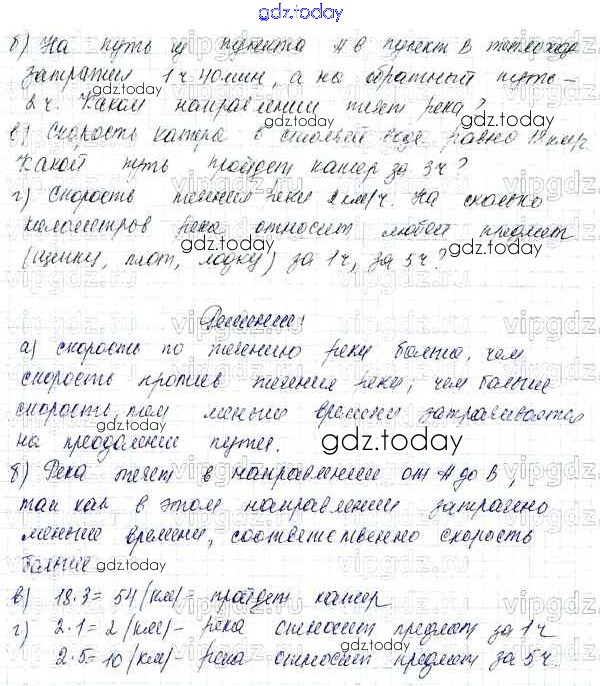 gdz.today
б) На путь из пункта А в пункт В теплоход
затратил 1 ч 40 мин, а на обратный путь –
2 ч. В каком направлении течет река?
gdz.today
в) Скорость катера в стоячей воде равна 18 км/ч.
Какой путь пройдет катер за 3 ч?
gdz.today
г) Скорость течения реки 2 км/ч. На сколько
километров река относит любой предмет
gdz.today
(щепку, плот, лодку) за 1 ч, за 5 ч?
gdz.today
Решение:
а) скорость по течению реки больше, чем
скорость против течения реки, чем больше
скорость, тем меньше времени затрачивается
на преодоление пути.
gdz.today
б) Река течет в направлении от А до В,
так как в этом направлении затрачено
меньше времени, соответственно скорость
больше
gdz.today
в) 18·3 = 54 (км) – пройдет катер
г) 2·1 = 2 (км) – река относит предмет за 1 ч
gdz.today
2·5 = 10 (км) – река относит предмет за 5 ч.
gdz.today